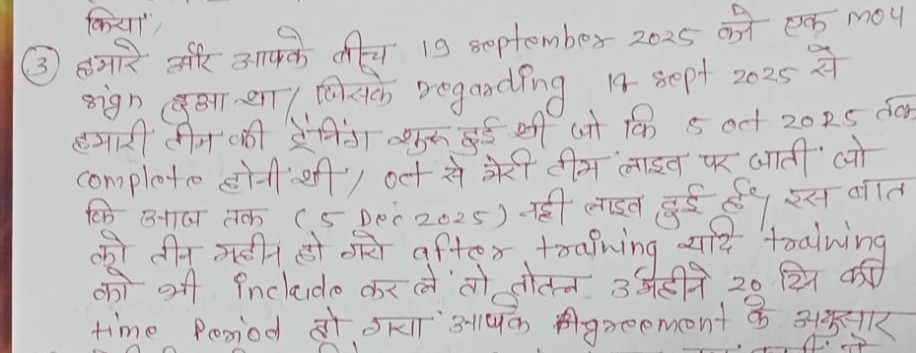 किया,
③ हमारे और आपके बीच 19 september 2025 को एक MOU
sign हुआ था / जिसके regarding 14 sept 2025 से
हमारी टीम की ट्रेनिंग शुरू हुई थी जो कि 5 oct 2025 तक
complete होनी थी, oct से मेरी टीम लाइव पर जाती जो
कि आज तक (5 Dec 2025) नही लाइव हुई है, इस बात
को तीन महीने हो गये after training यदि training
को भी include कर लें तो टोटल 3 महीने 20 दिन की
time Period हो गया आपके Agreement के अनुसार